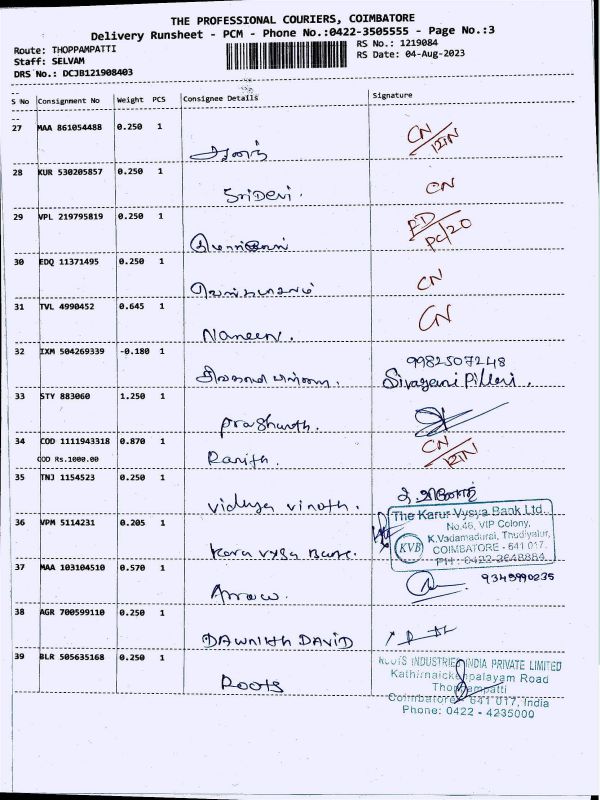 THE PROFESSIONAL COURIERS, COIMBATORE
Delivery Runsheet - PCM - Phone No.:0422-3505555 - Page No.:3
Route: THOPPAMPATTI
RS No.: 1219084
Staff: SELVAM
RS Date: 04-Aug-2023
DRS No.: DCJB121908403
S No Consignment No Weight PCS Consignee Details Signature
27 MAA 861054488 0.250 1
CN/RIN
ஆனந்
28 KUR 530205857 0.250 1
CN
SriDevi.
29 VPL 219795819 0.250 1
PC/20
30 EDQ 11371495 0.250 1
CN
31 TVL 4990452 0.645 1
CN
Naneen.
32 IXM 504269339 -0.180 1
9982507248
சிவகாமி பிள்ளை. Sivagami Pillai.
33 STY 883060 1.250 1
Prashanth.
34 COD 1111943318 0.870 1
CN/RIN
COD Rs.1000.00
Ranjth.
35 TNJ 1154523 0.250 1
Vidhya vinoth.
The Karur Vysya Bank Ltd.,
36 VPM 5114231 0.205 1
No.46, VIP Colony,
K.Vadamadurai, Thudiyalur,
KVB
COIMBATORE - 641 017.
Karur vysya Bank.
PH : 0422-2648884
37 MAA 103104510 0.570 1
9345990235
Arrow.
38 AGR 700599110 0.250 1
DAWNITH DAVID
39 BLR 505635168 0.250 1
ROOTS INDUSTRIES INDIA PRIVATE LIMITED
Kathirnaickenpalayam Road
Roots
Thoppampatti
Coimbatore - 641 017, India
Phone: 0422 - 4235000